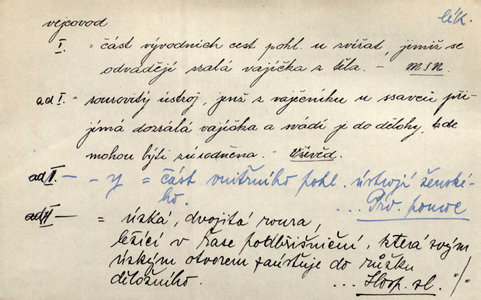 vejcovod lék.
I. = část vývodních cest pohl. u zvířat, jimiž se
odvádějí zralá vajíčka z těla. - MSN.
ad I. - rourovitý ústroj, jenž z vaječníku u ssavců při-
jímá dozrálá vajíčka a svádí je do dělohy, kde
mohou býti zúrodněna. - Vševěd.
ad II. - - y = část vnitřního pohl. ústrojí ženské-
ho. ... Prv. pomoc
ad II - = úzká, dvojitá roura,
ležící v řase podbřišniční, která svým
úzkým otvorem zaúsťuje do růžku
děložního. ... Hosp. sl. ·/·